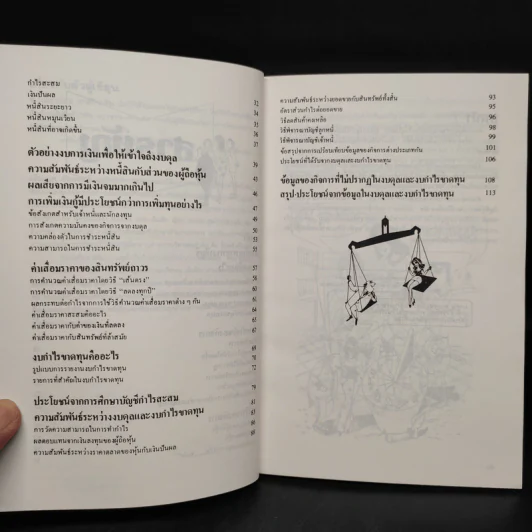 กำไรสะสม
เงินปันผล
หนี้สินระยะยาว 32
หนี้สินหมุนเวียน 34
หนี้สินที่อาจเกิดขึ้น 35
37
ตัวอย่างงบการเงินเพื่อให้เข้าใจถึงงบดุล 37
ความสัมพันธ์ระหว่างหนี้สินกับส่วนของผู้ถือหุ้น 39
ผลเสียจากการมีเงินจมมากเกินไป
การเพิ่มเงินกู้มีประโยชน์กว่าการเพิ่มทุนอย่างไร
ข้อสังเกตสำหรับเจ้าหนี้และนักลงทุน 47
การสังเกตความมั่นคงของกิจการจากงบดุล 49
ความคล่องตัวในการชำระหนี้สิน 50
ความสามารถในการชำระหนี้สิน 55
55
ค่าเสื่อมราคาของสินทรัพย์ถาวร 57
การคำนวณค่าเสื่อมราคาโดยวิธี "เส้นตรง" 58
การคำนวณค่าเสื่อมราคาโดยวิธี "ลดลงทุกปี" 60
ผลกระทบต่อกำไรจากการใช้วิธีคำนวณค่าเสื่อมราคาต่าง ๆ กัน 61
ค่าเสื่อมราคาสะสมคืออะไร 64
ค่าเสื่อมราคากับค่าของเงินที่ลดลง 65
ค่าเสื่อมราคากับสินทรัพย์ที่ล้าสมัย 67
งบกำไรขาดทุนคืออะไร 69
รูปแบบการรายงานงบกำไรขาดทุน 70
รายการที่สำคัญในงบกำไรขาดทุน 72
ประโยชน์จากการศึกษาบัญชีกำไรสะสม 79
ความสัมพันธ์ระหว่างงบดุลและงบกำไรขาดทุน 81
การวัดความสามารถในการทำกำไร
ผลตอบแทนจากเงินลงทุนของผู้ถือหุ้น
ความสัมพันธ์ระหว่างราคาตลาดของหุ้นกับเงินปันผล
ความสัมพันธ์ระหว่างยอดขายกับสินทรัพย์ทั้งสิ้น 93
อัตราส่วนกำไรต่อยอดขาย 95
วิธีลดสินค้าคงเหลือ 96
วิธีพิจารณาบัญชีลูกหนี้ 98
วิธีพิจารณาบัญชีเจ้าหนี้ 99
ข้อสรุปจากการเปรียบเทียบข้อมูลของกิจการต่างประเภทกัน 101
ประโยชน์ที่ได้รับจากงบดุลและงบกำไรขาดทุน 106
ข้อมูลของกิจการที่ไม่ปรากฏในงบดุลและงบกำไรขาดทุน 108
สรุป-ประโยชน์จากข้อมูลในงบดุลและงบกำไรขาดทุน 113